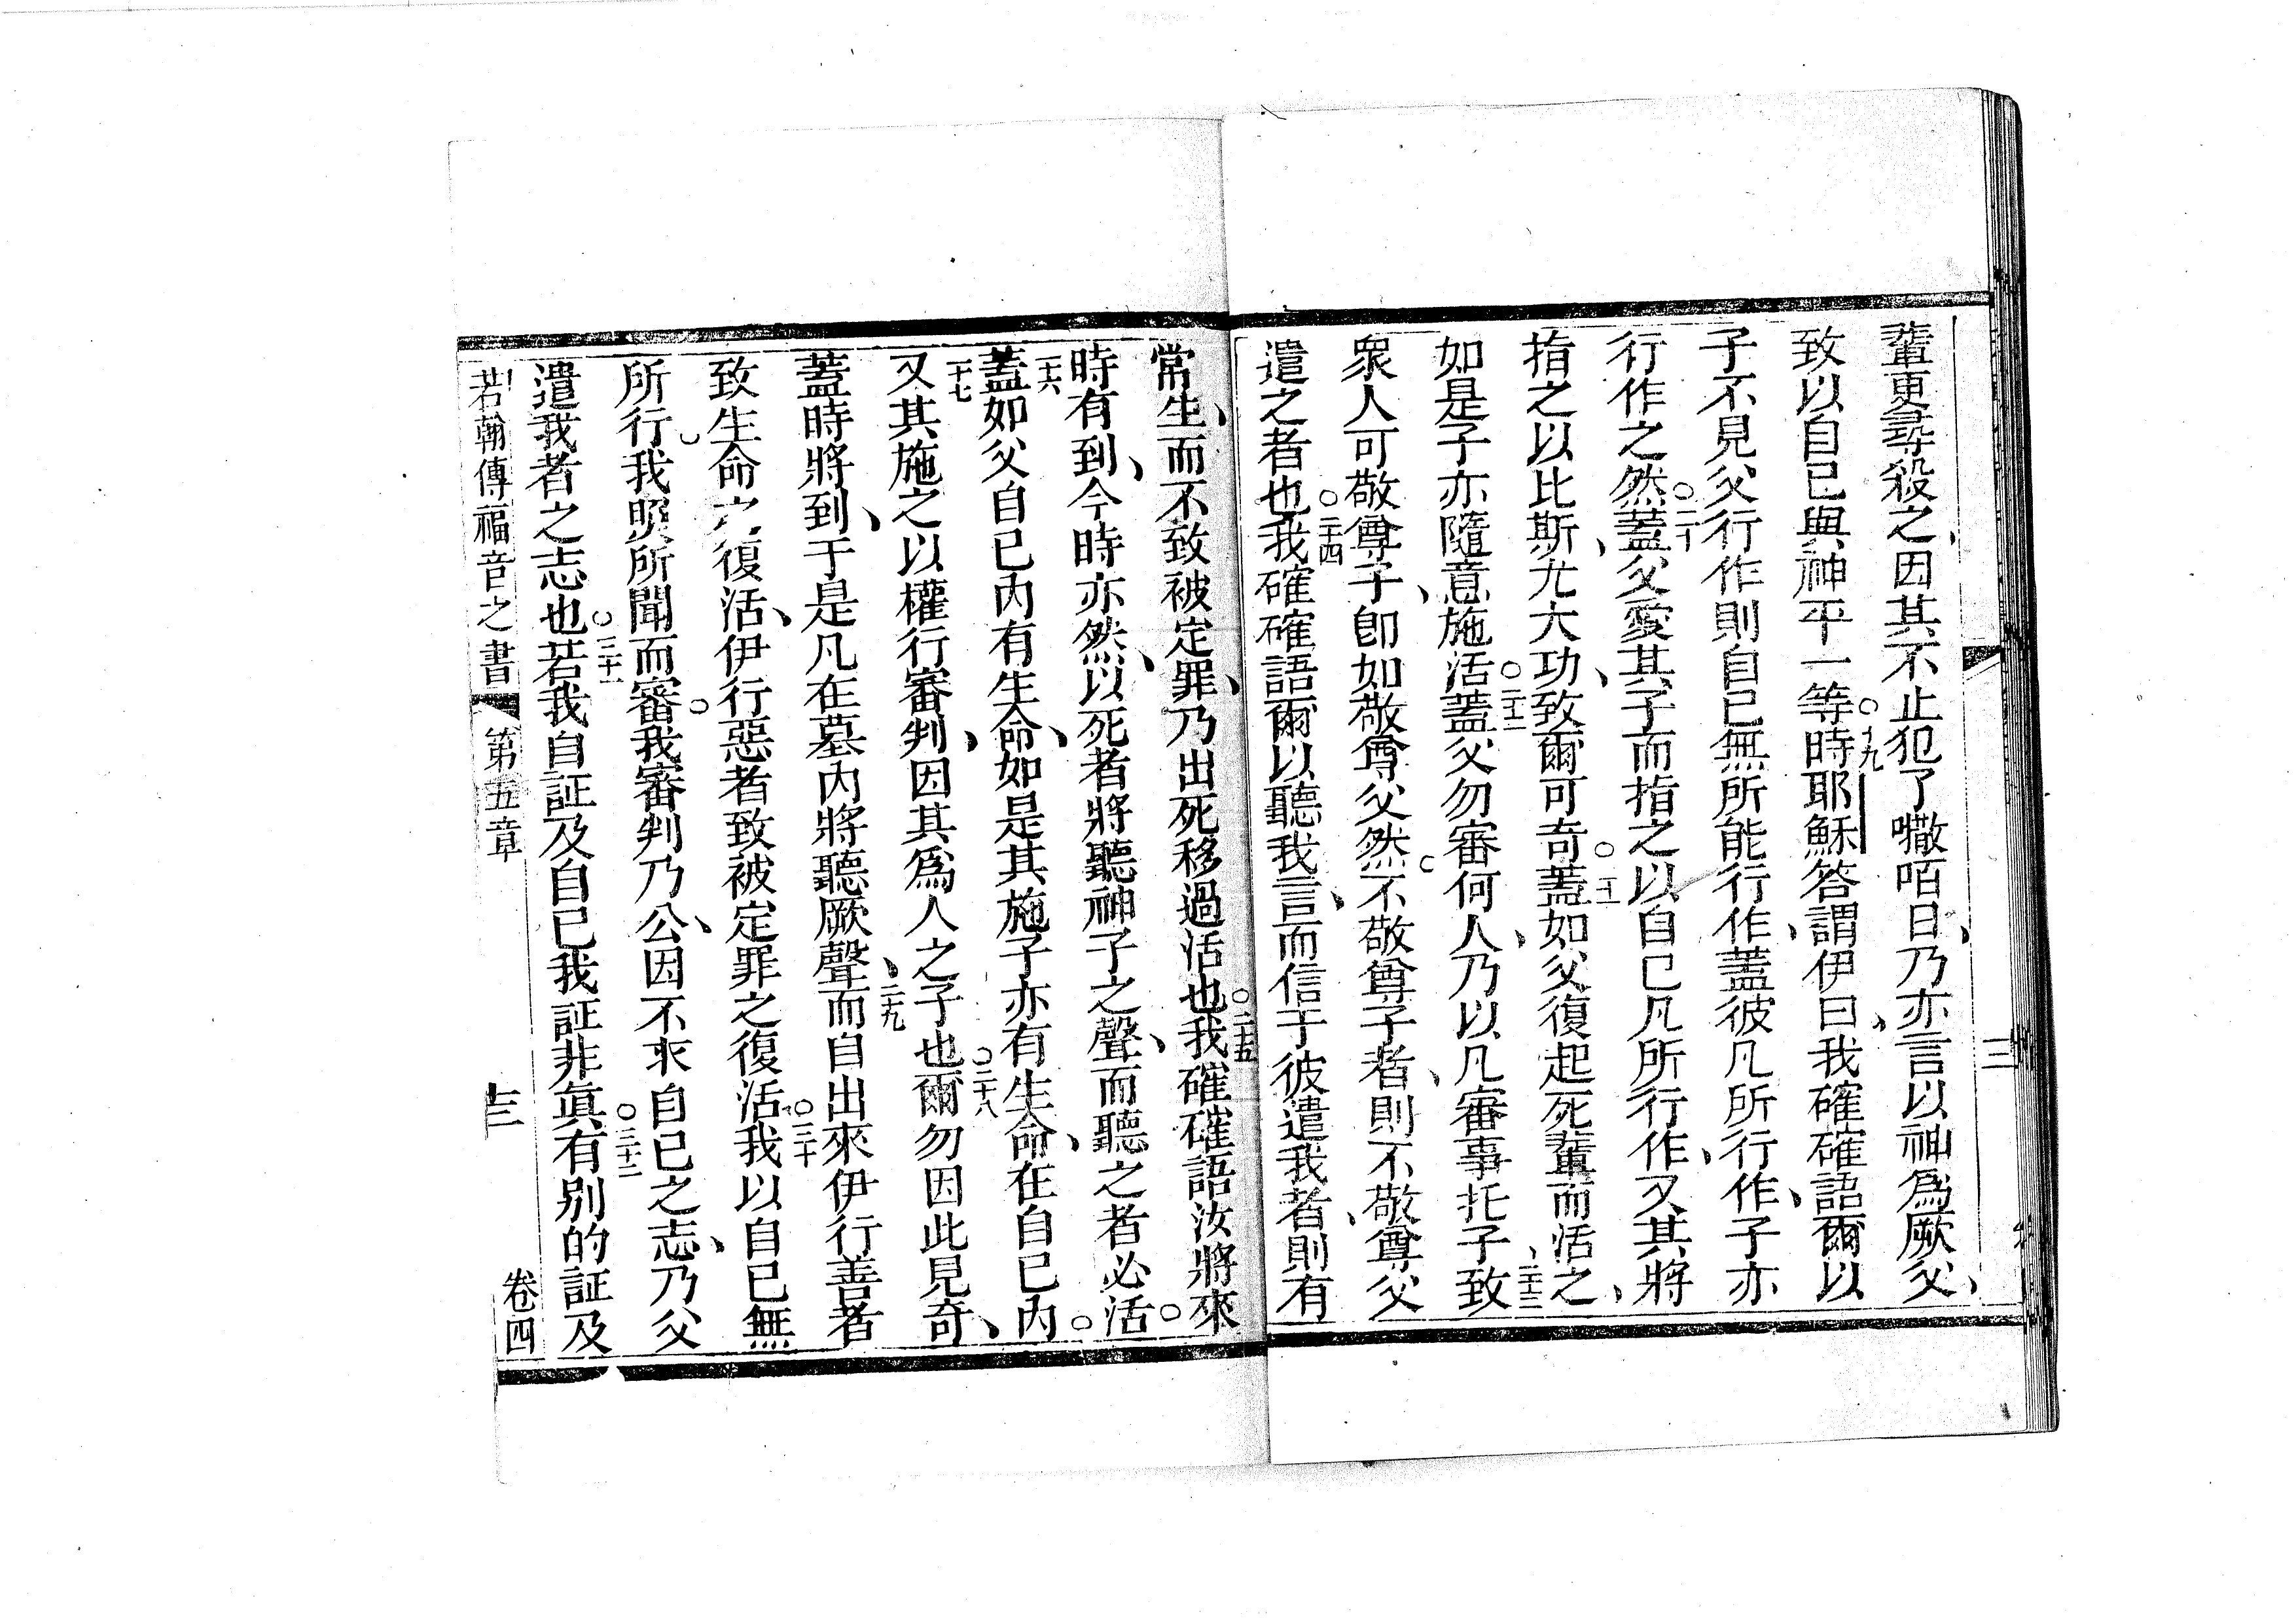 輩更尋殺之、因其不止犯了𡃤咟日、乃亦言以神爲厥父、
致以自己與神平一等。十九時耶穌答謂伊曰、我確確語爾以
子不見父行作則自己無所能行作、蓋彼凡所行作、子亦
行作之然。二十蓋父愛其子而指之以自己凡所行作、又其將
指之以比斯尤大功、致爾可奇。二一蓋如父復起死輩而活之、
如是子亦隨意施活。二十二蓋父勿審何人、乃以凡審事托子、二十三致
衆人可敬尊子、卽如敬尊父然。不敬尊子者、則不敬尊父
遣之者也。二十四我確確語爾以聽我言、而信于彼遣我者、則有
常生、而不致被定罪、乃出死移過活也。二十五我確確語汝將來
時有到、今時亦然、以死者將聽神子之聲、而聽之者必活。
二十六蓋如父自己內有生命、如是其施子亦有生命、在自己內。
二十七又其施之以權行審判、因其爲人之子也。二十八爾勿因此見奇、
蓋時將到、于是凡在墓內將聽厥聲、二十九而自出來伊行善者
致生命之復活、伊行惡者致被定罪之復活。三十我以自己無
所行。我照所聞而審。我審判乃公、因不求自己之志、乃父
遣我者之志也。三十一若我自証及自己我証非眞。三十二有别的証及
若翰傳福音之書 第五章 十三 卷四